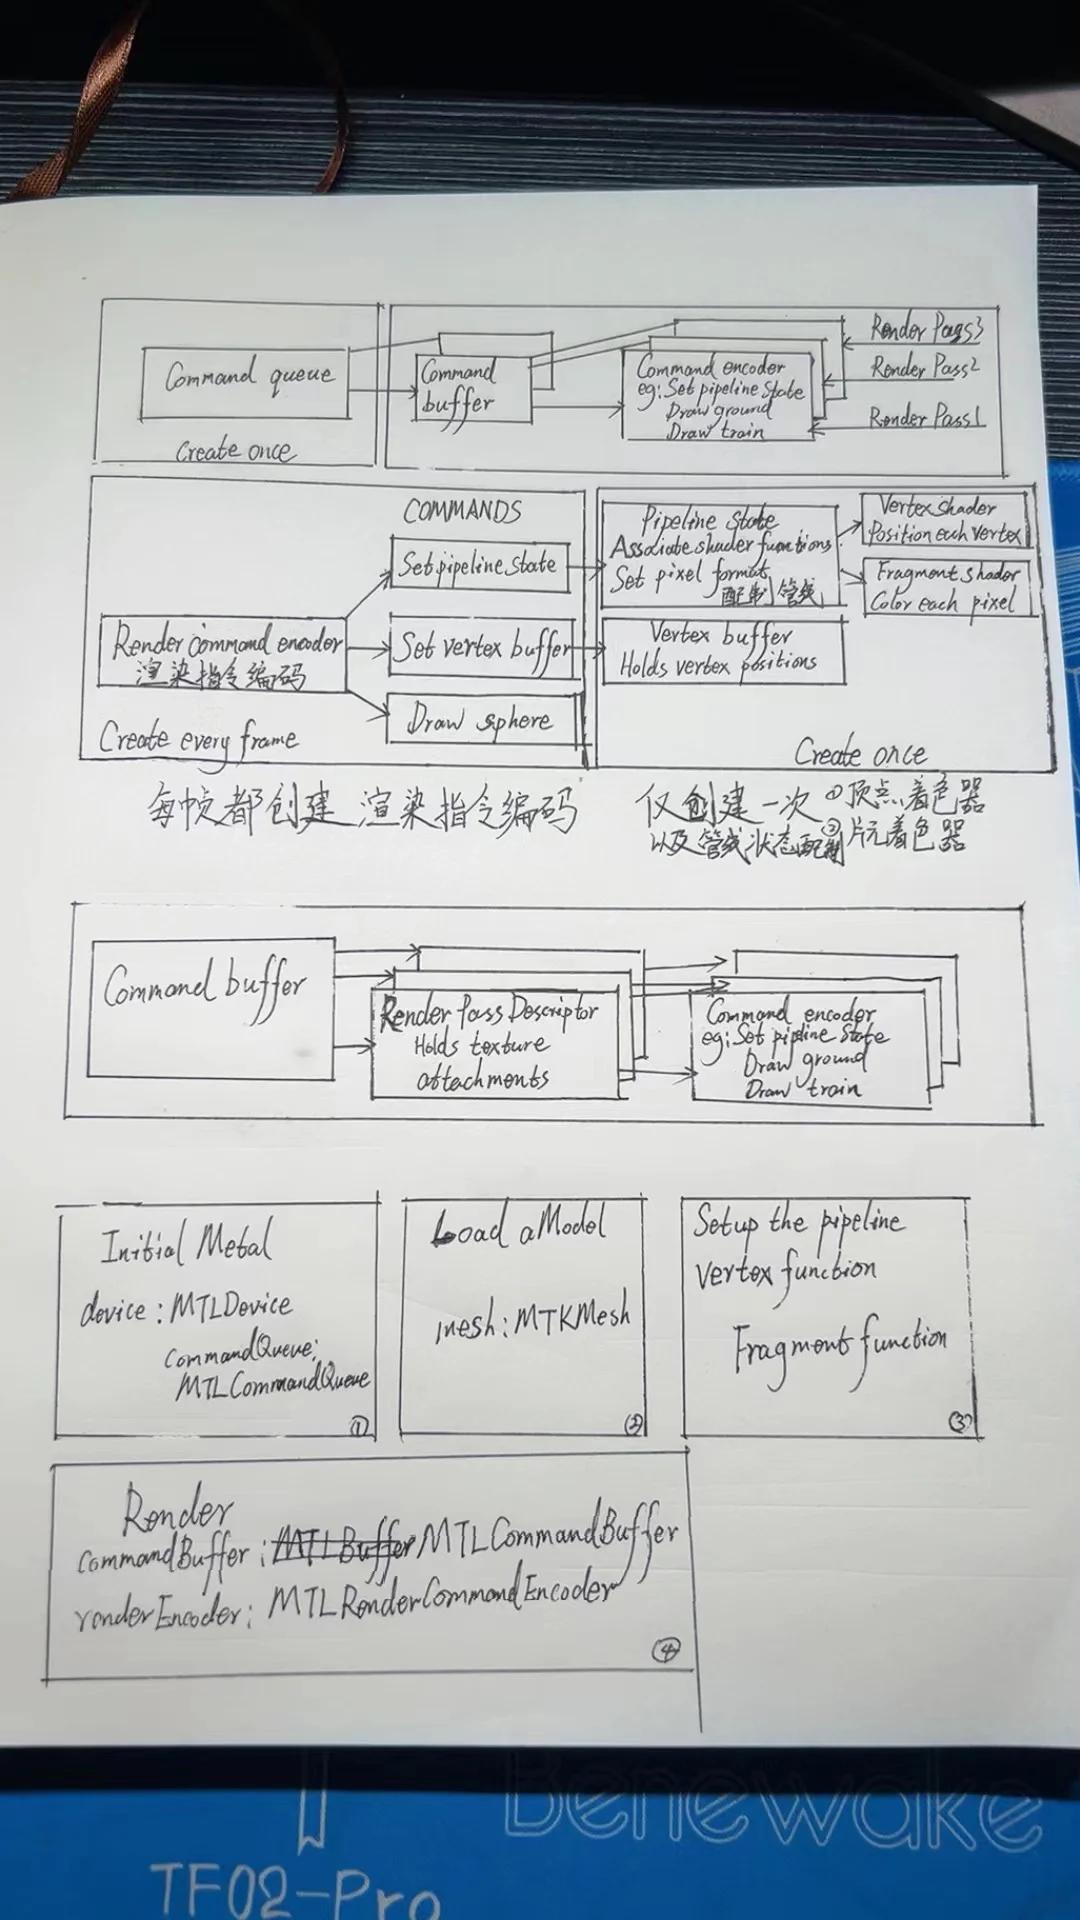 Command queue
Create once
Command
buffer
Command encoder
eg: Set pipeline State
Draw ground
Draw train
Render Pass3
Render Pass2
Render Pass1
COMMANDS
Set pipeline state
Render command encoder
渲染指令编码
Set vertex buffer
Draw sphere
Create every frame
Pipeline State
Assoliate shader functions
Set pixel format
配制管线
Vertex shader
Position each vertex
Fragment shader
Color each pixel
Vertex buffer
Holds vertex positions
Create once
每帧都创建渲染指令编码
仅创建一次 ①顶点着色器
以及管线状态配制 ②片元着色器
Command buffer
Render Pass Descriptor
Holds texture
attachments
Command encoder
eg: Set pipline State
Draw ground
Draw train
Initial Metal
device: MTLDevice
CommandQueue:
MTLCommandQueue
①
Load a Model
mesh: MTKMesh
②
Setup the pipeline
Vertex function
Fragment function
③
Render
CommandBuffer: MTLBuffer MTLCommandBuffer
renderEncoder: MTLRenderCommandEncoder
④
Benewake
TF02-Pro